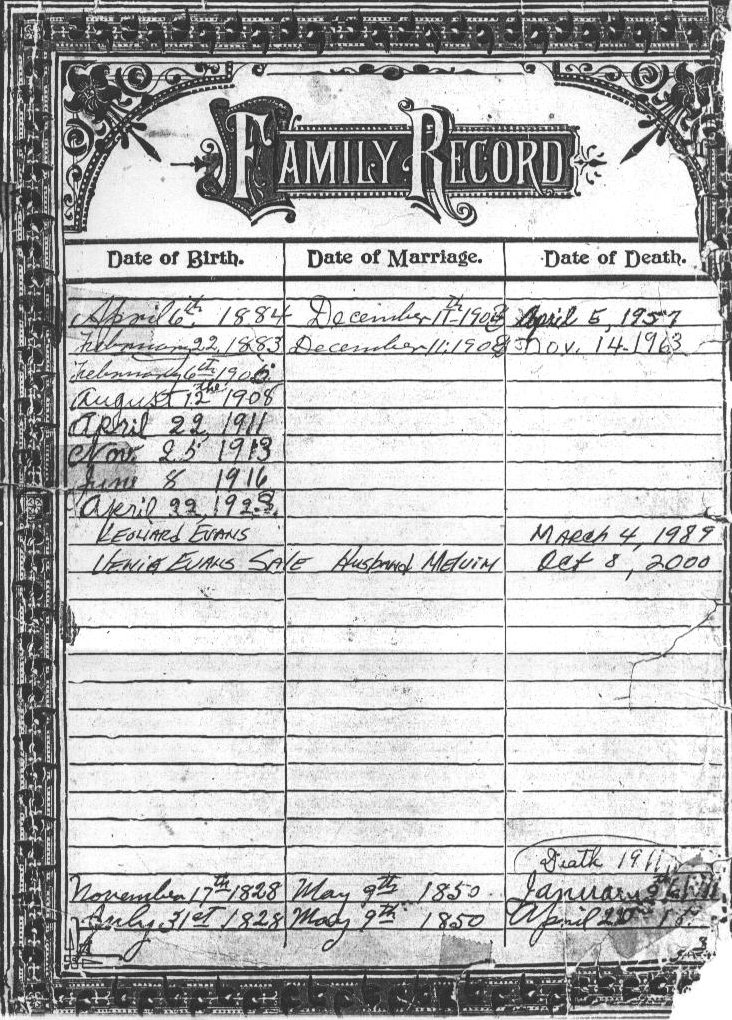 FAMILY RECORD
Date of Birth. Date of Marriage. Date of Death.
April 6th. 1884 December 11th-1903 April 5, 1957
February 22, 1883 December 11, 1903 Nov. 14-1963
February 6th 1905
August 12the 1908
April 22, 1911
Nov. 25 1913
June 8 1916
April 22, 1923
LEONARD EVANS MARCH 4, 1989
VENIA EVANS SALE Husband MELVIN Oct 8, 2000
Death 1911
November 17th 1828 May 9th 1850 January
July 31st 1828 May 9th 1850 April